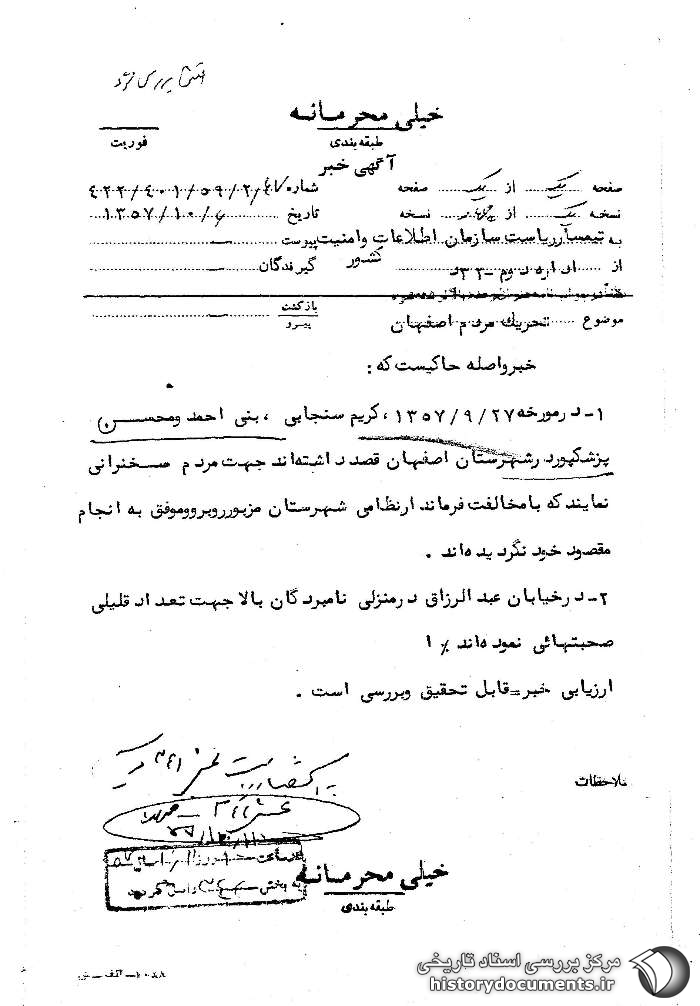 خیلی محرمانه
طبقه‌بندی
فوریت
آگهی خبر
صفحه یک از یک صفحه
شماره ۴۲۲/۴۰۱/۵۹/۲/
نسخه یک از نسخه
تاریخ ۱۳۵۷/۱۰/۶
به تیمسار ریاست سازمان اطلاعات و امنیت کشور
پیوست
از اداره دوم - ۳۳۰
گیرندگان
بازگشت
پیرو
موضوع تحریک مردم اصفهان
خبر واصله حاکیست که :
۱- در مورخه ۱۳۵۷/۹/۲۷ ، کریم سنجابی ، بنی احمد و محسن
پزشکپور در شهرستان اصفهان قصد داشته‌اند جهت مردم سخنرانی
نمایند که با مخالفت فرماندار نظامی شهرستان مزبور روبرو و موفق به انجام
مقصود خود نگردیده‌اند .
۲- در خیابان عبدالرزاق در منزلی نامبردگان بالا جهت تعداد قلیلی
صحبتهائی نموده‌اند ٪ ا
ارزیابی خبر = قابل تحقیق و بررسی است .
ملاحظات
خیلی محرمانه
طبقه‌بندی
مرکز بررسی اسناد تاریخی
historydocuments.ir